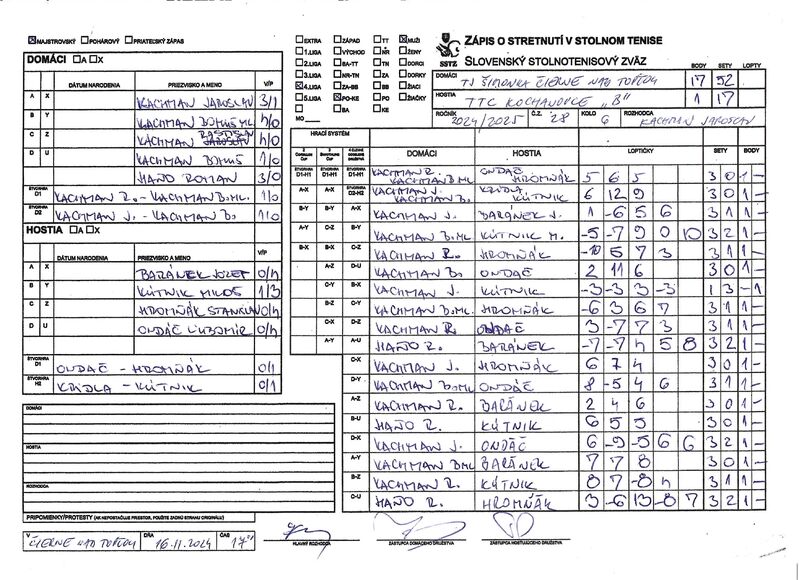 ☒ MAJSTROVSKÝ ☐ POHÁROVÝ ☐ PRIATEĽSKÝ ZÁPAS
☐ EXTRA ☐ ZÁPAD ☐ TT ☒ MUŽI
☐ 1.LIGA ☐ VÝCHOD ☐ NR ☐ ŽENY
☐ 2.LIGA ☐ BA-TT ☐ TN ☐ DORCI
☐ 3.LIGA ☐ NR-TN ☐ ZA ☐ DORKY
☒ 4.LIGA ☐ ZA-BB ☐ BB ☐ ŽIACI
☐ 5.LIGA ☒ PO-KE ☐ PO ☐ ŽIAČKY
☐ ☐ BA ☐ KE
MO
SSTZ
ZÁPIS O STRETNUTÍ V STOLNOM TENISE
SLOVENSKÝ STOLNOTENISOVÝ ZVÄZ
BODY SETY LOPTY
DOMÁCI TJ ŠIMONKA ČIERNE NAD TOPĽOU 17 52
HOSTIA TTC KOCHANOVCE „B" 1 17
ROČNÍK 2024/2025 Č.Z. 28 KOLO 6 ROZHODCA KACHMAN JAROSLAV
DOMÁCI ☐ A ☐ X
DÁTUM NARODENIA PRIEZVISKO A MENO V/P
A X KACHMAN JAROSLAV 3/1
B Y KACHMAN BOHUŠ ML. 4/0
C Z KACHMAN RASTISLAV 4/0
D U KACHMAN BOHUŠ 1/0
HAŇO ROMAN 3/0
ŠTVORHRA D1 KACHMAN R. - KACHMAN B.ML. 1/0
ŠTVORHRA D2 KACHMAN J. - KACHMAN B. 1/0
HOSTIA ☐ A ☐ X
DÁTUM NARODENIA PRIEZVISKO A MENO V/P
A X BARÁNEK JOZEF 0/4
B Y KÚTNIK MILOŠ 1/3
C Z HROMŇÁK STANISLAV 0/4
D U ONDÁČ ĽUBOMÍR 0/4
ŠTVORHRA D1 ONDÁČ - HROMŇÁK 0/1
ŠTVORHRA H2 KRIDLA - KÚTNIK 0/1
DOMÁCI
HOSTIA
ROZHODCA
PRIPOMIENKY/PROTESTY (AK NEPOSTAČUJE PRIESTOR, POUŽITE ZADNÚ STRANU ORIGINÁLU)
HRACÍ SYSTÉM
DOMÁCI HOSTIA LOPTIČKY SETY BODY
ŠTVORHRA D1-H1 ŠTVORHRA D1-H1 ŠTVORHRA D1-H1 KACHMAN R. KACHMAN B.ML. ONDÁČ HROMŇÁK 5 6 5 3 0 1 -
A-X A-X ŠTVORHRA D2-H2 KACHMAN J. KACHMAN B. KRIDLA KÚTNIK 6 12 9 3 0 1 -
B-Y B-Y A-X KACHMAN J. BARÁNEK J. 1 -6 5 6 3 1 1 -
A-Y C-Z B-Y KACHMAN B.ML. KÚTNIK M. -5 -7 9 0 10 3 2 1 -
B-X B-X C-Z KACHMAN R. HROMŇÁK -10 5 7 3 3 1 1 -
A-Z D-U KACHMAN B. ONDÁČ 2 11 6 3 0 1 -
C-Y B-X KACHMAN J. KÚTNIK -3 -3 3 -3 1 3 - 1
B-Z C-Y KACHMAN B.ML. HROMŇÁK -6 3 6 7 3 1 1 -
C-X D-Z KACHMAN R. ONDÁČ 3 -7 7 3 3 1 1 -
A-Y A-U HAŇO R. BARÁNEK -7 -7 4 5 8 3 2 1 -
C-X KACHMAN J. HROMŇÁK 6 7 4 3 0 1 -
D-Y KACHMAN B.ML. ONDÁČ 8 -5 4 6 3 1 1 -
A-Z KACHMAN R. BARÁNEK 2 4 6 3 0 1 -
B-U HAŇO R. KÚTNIK 6 5 5 3 0 1 -
D-X KACHMAN J. ONDÁČ 6 -9 -5 6 6 3 2 1 -
A-Y KACHMAN B.ML. BARÁNEK 7 7 8 3 0 1 -
B-Z KACHMAN R. KÚTNIK 8 7 -8 4 3 1 1 -
C-U HAŇO R. HROMŇÁK 3 -6 13 -8 7 3 2 1 -
V ČIERNE NAD TOPĽOU DŇA 16.11.2024 ČAS 17°°
HLAVNÝ ROZHODCA
ZÁSTUPCA DOMÁCEHO DRUŽSTVA
ZÁSTUPCA HOSŤUJÚCEHO DRUŽSTVA